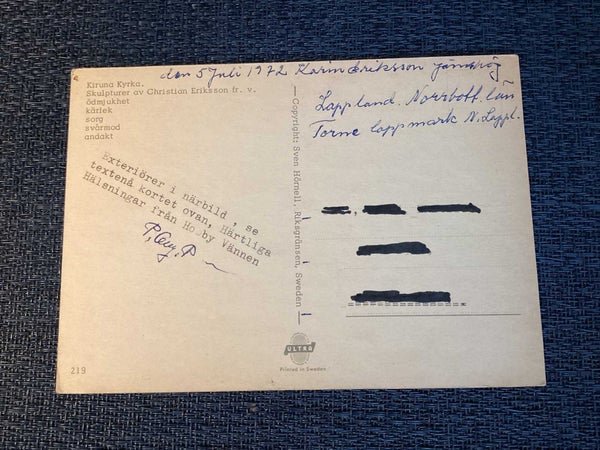 den 5 Juli 1972 Karin Eriksson
Kiruna Kyrka.
Skulpturer av Christian Eriksson fr. v.
ödmjukhet
kärlek
sorg
svårmod
andakt
Lappland. Norrbott. län
Torne lappmark N. Lappl.
Exteriörer i närbild, se
textenå kortet ovan, Härtliga
Hälsningar från Hobby Vännen
Copyright: Sven Hörnell, Riksgränsen, Sweden
219
ULTRA
Printed in Sweden